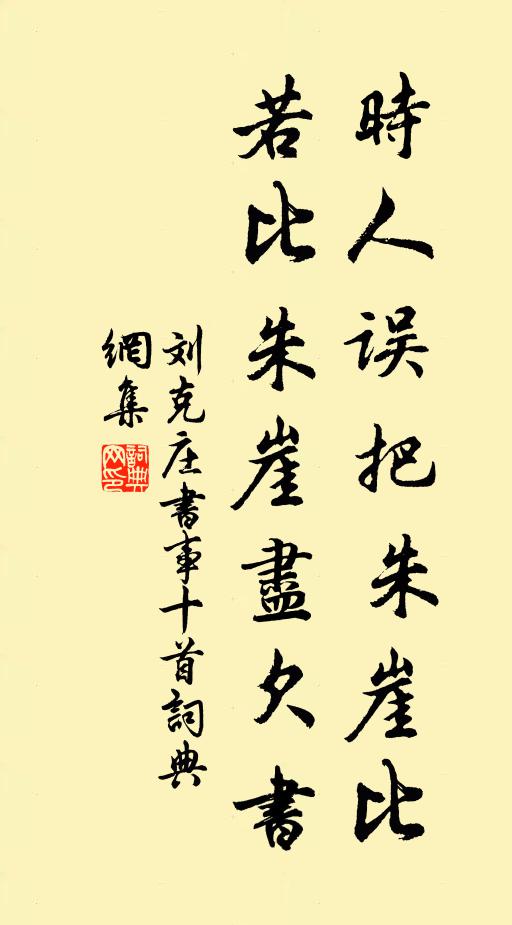 時人误把朱崖比
若比朱崖盡欠書
刘克庄書事十首詞典
網集
詞典
网印